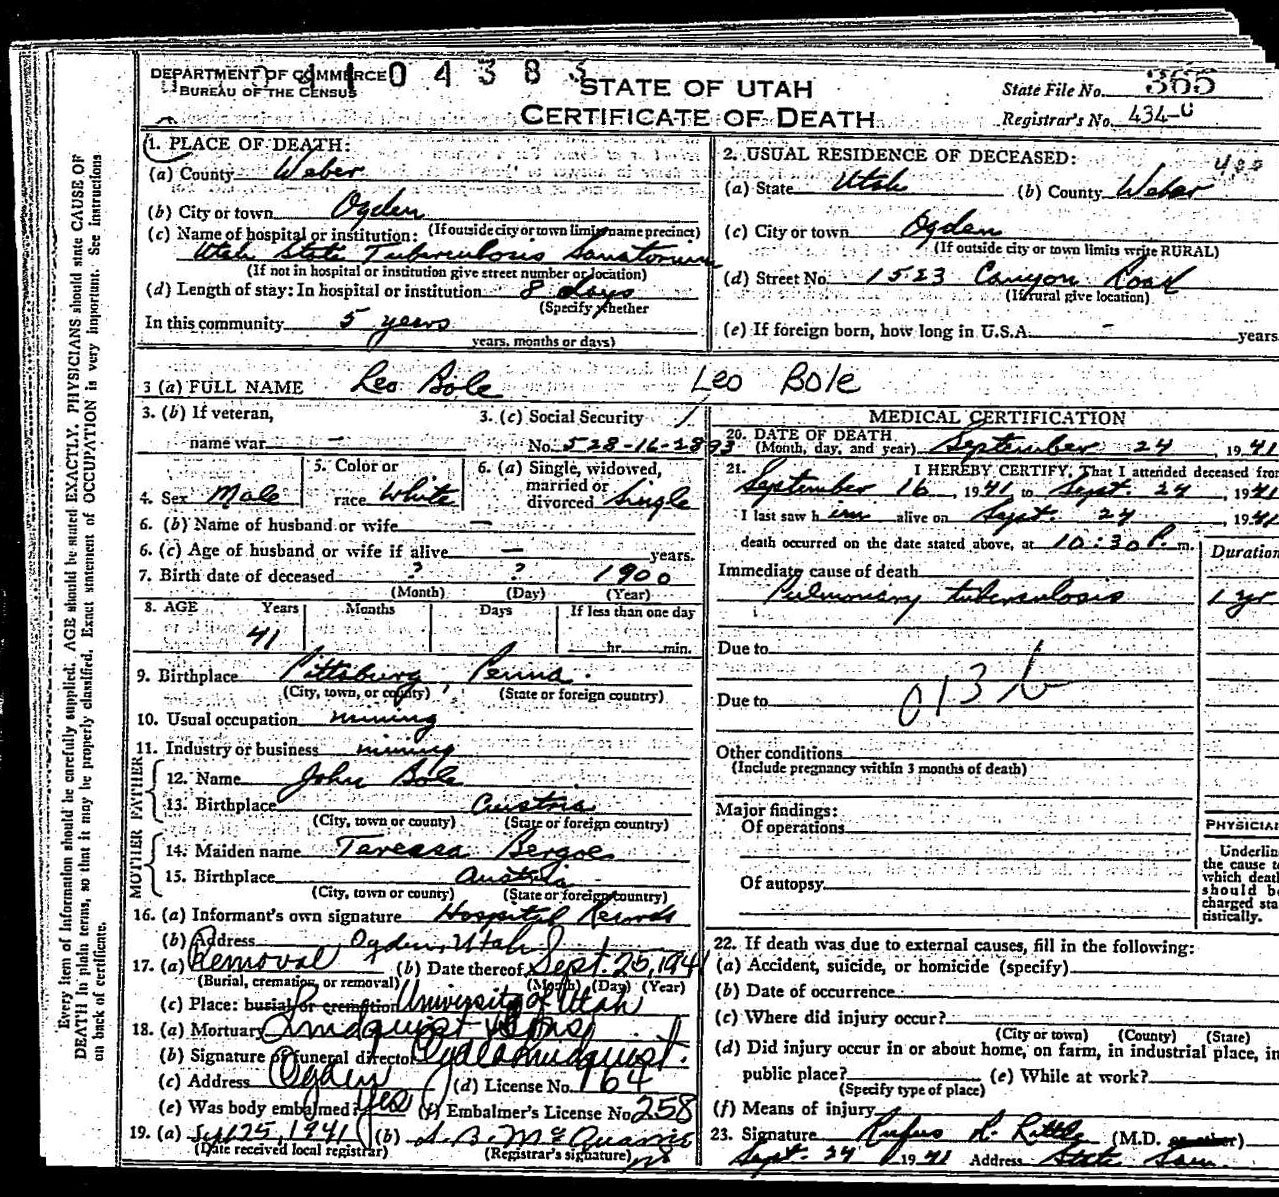 DEPARTMENT OF COMMERCE
BUREAU OF THE CENSUS
0438
STATE OF UTAH
CERTIFICATE OF DEATH
State File No. 365
Registrar's No. 434-C
1. PLACE OF DEATH:
(a) County Weber
(b) City or town Ogden
(If outside city or town limits name precinct)
(c) Name of hospital or institution:
Utah State Tuberculosis Sanatorium
(If not in hospital or institution give street number or location)
(d) Length of stay: In hospital or institution 8 days
(Specify whether
In this community 5 years
years, months or days)
2. USUAL RESIDENCE OF DECEASED:
(a) State Utah (b) County Weber
(c) City or town Ogden
(If outside city or town limits write RURAL)
(d) Street No. 1523 Canyon Road
(If rural give location)
(e) If foreign born, how long in U.S.A. - years
3 (a) FULL NAME Leo Bole Leo Bole
3. (b) If veteran,
name war -
3. (c) Social Security
No. 528-16-2893
4. Sex Male
5. Color or
race White
6. (a) Single, widowed,
married or
divorced Single
6. (b) Name of husband or wife —
6. (c) Age of husband or wife if alive — years.
7. Birth date of deceased ? ? 1900
(Month) (Day) (Year)
8. AGE Years Months Days If less than one day
41 hr. min.
9. Birthplace Pittsburg, Penna.
(City, town, or county) (State or foreign country)
10. Usual occupation mining
11. Industry or business mining
FATHER
12. Name John Bole
13. Birthplace Austria
(City, town or county) (State or foreign country)
MOTHER
14. Maiden name Taressa Bergoe
15. Birthplace Austria
(City, town or county) (State or foreign country)
16. (a) Informant's own signature Hospital Records
(b) Address Ogden, Utah
17. (a) Removal (b) Date thereof Sept. 25, 1941
(Burial, cremation, or removal) (Month) (Day) (Year)
(c) Place: burial or cremation University of Utah
18. (a) Mortuary Lindquist & Sons
(b) Signature of funeral director Lindquist.
(c) Address Ogden (d) License No. 164
(e) Was body embalmed? Yes (f) Embalmer's License No. 258
19. (a) 25, 1941 (b)
(Date received local registrar) (Registrar's signature)
MEDICAL CERTIFICATION
20. DATE OF DEATH
(Month, day, and year) September 24, 1941
21. I HEREBY CERTIFY, That I attended deceased from
September 16, 1941 to Sept. 24, 1941
I last saw him alive on Sept. 24, 1941
death occurred on the date stated above, at 10:30 P. m.
Duration
Immediate cause of death
Pulmonary tuberculosis 1 yr
Due to
Due to 013
Other conditions
(Include pregnancy within 3 months of death)
Major findings:
Of operations
Of autopsy
PHYSICIAN
Underline
the cause to
which death
should be
charged sta
tistically.
22. If death was due to external causes, fill in the following:
(a) Accident, suicide, or homicide (specify)
(b) Date of occurrence
(c) Where did injury occur?
(City or town) (County) (State)
(d) Did injury occur in or about home, on farm, in industrial place, in
public place? (e) While at work?
(Specify type of place)
(f) Means of injury
23. Signature Rufus (M.D. or other)
Sept. 24 1941 Address State San.
Every item of information should be carefully supplied. AGE should be stated EXACTLY. PHYSICIANS should state CAUSE OF
DEATH in plain terms, so that it may be properly classified. Exact statement of OCCUPATION is very important. See instructions
on back of certificate.